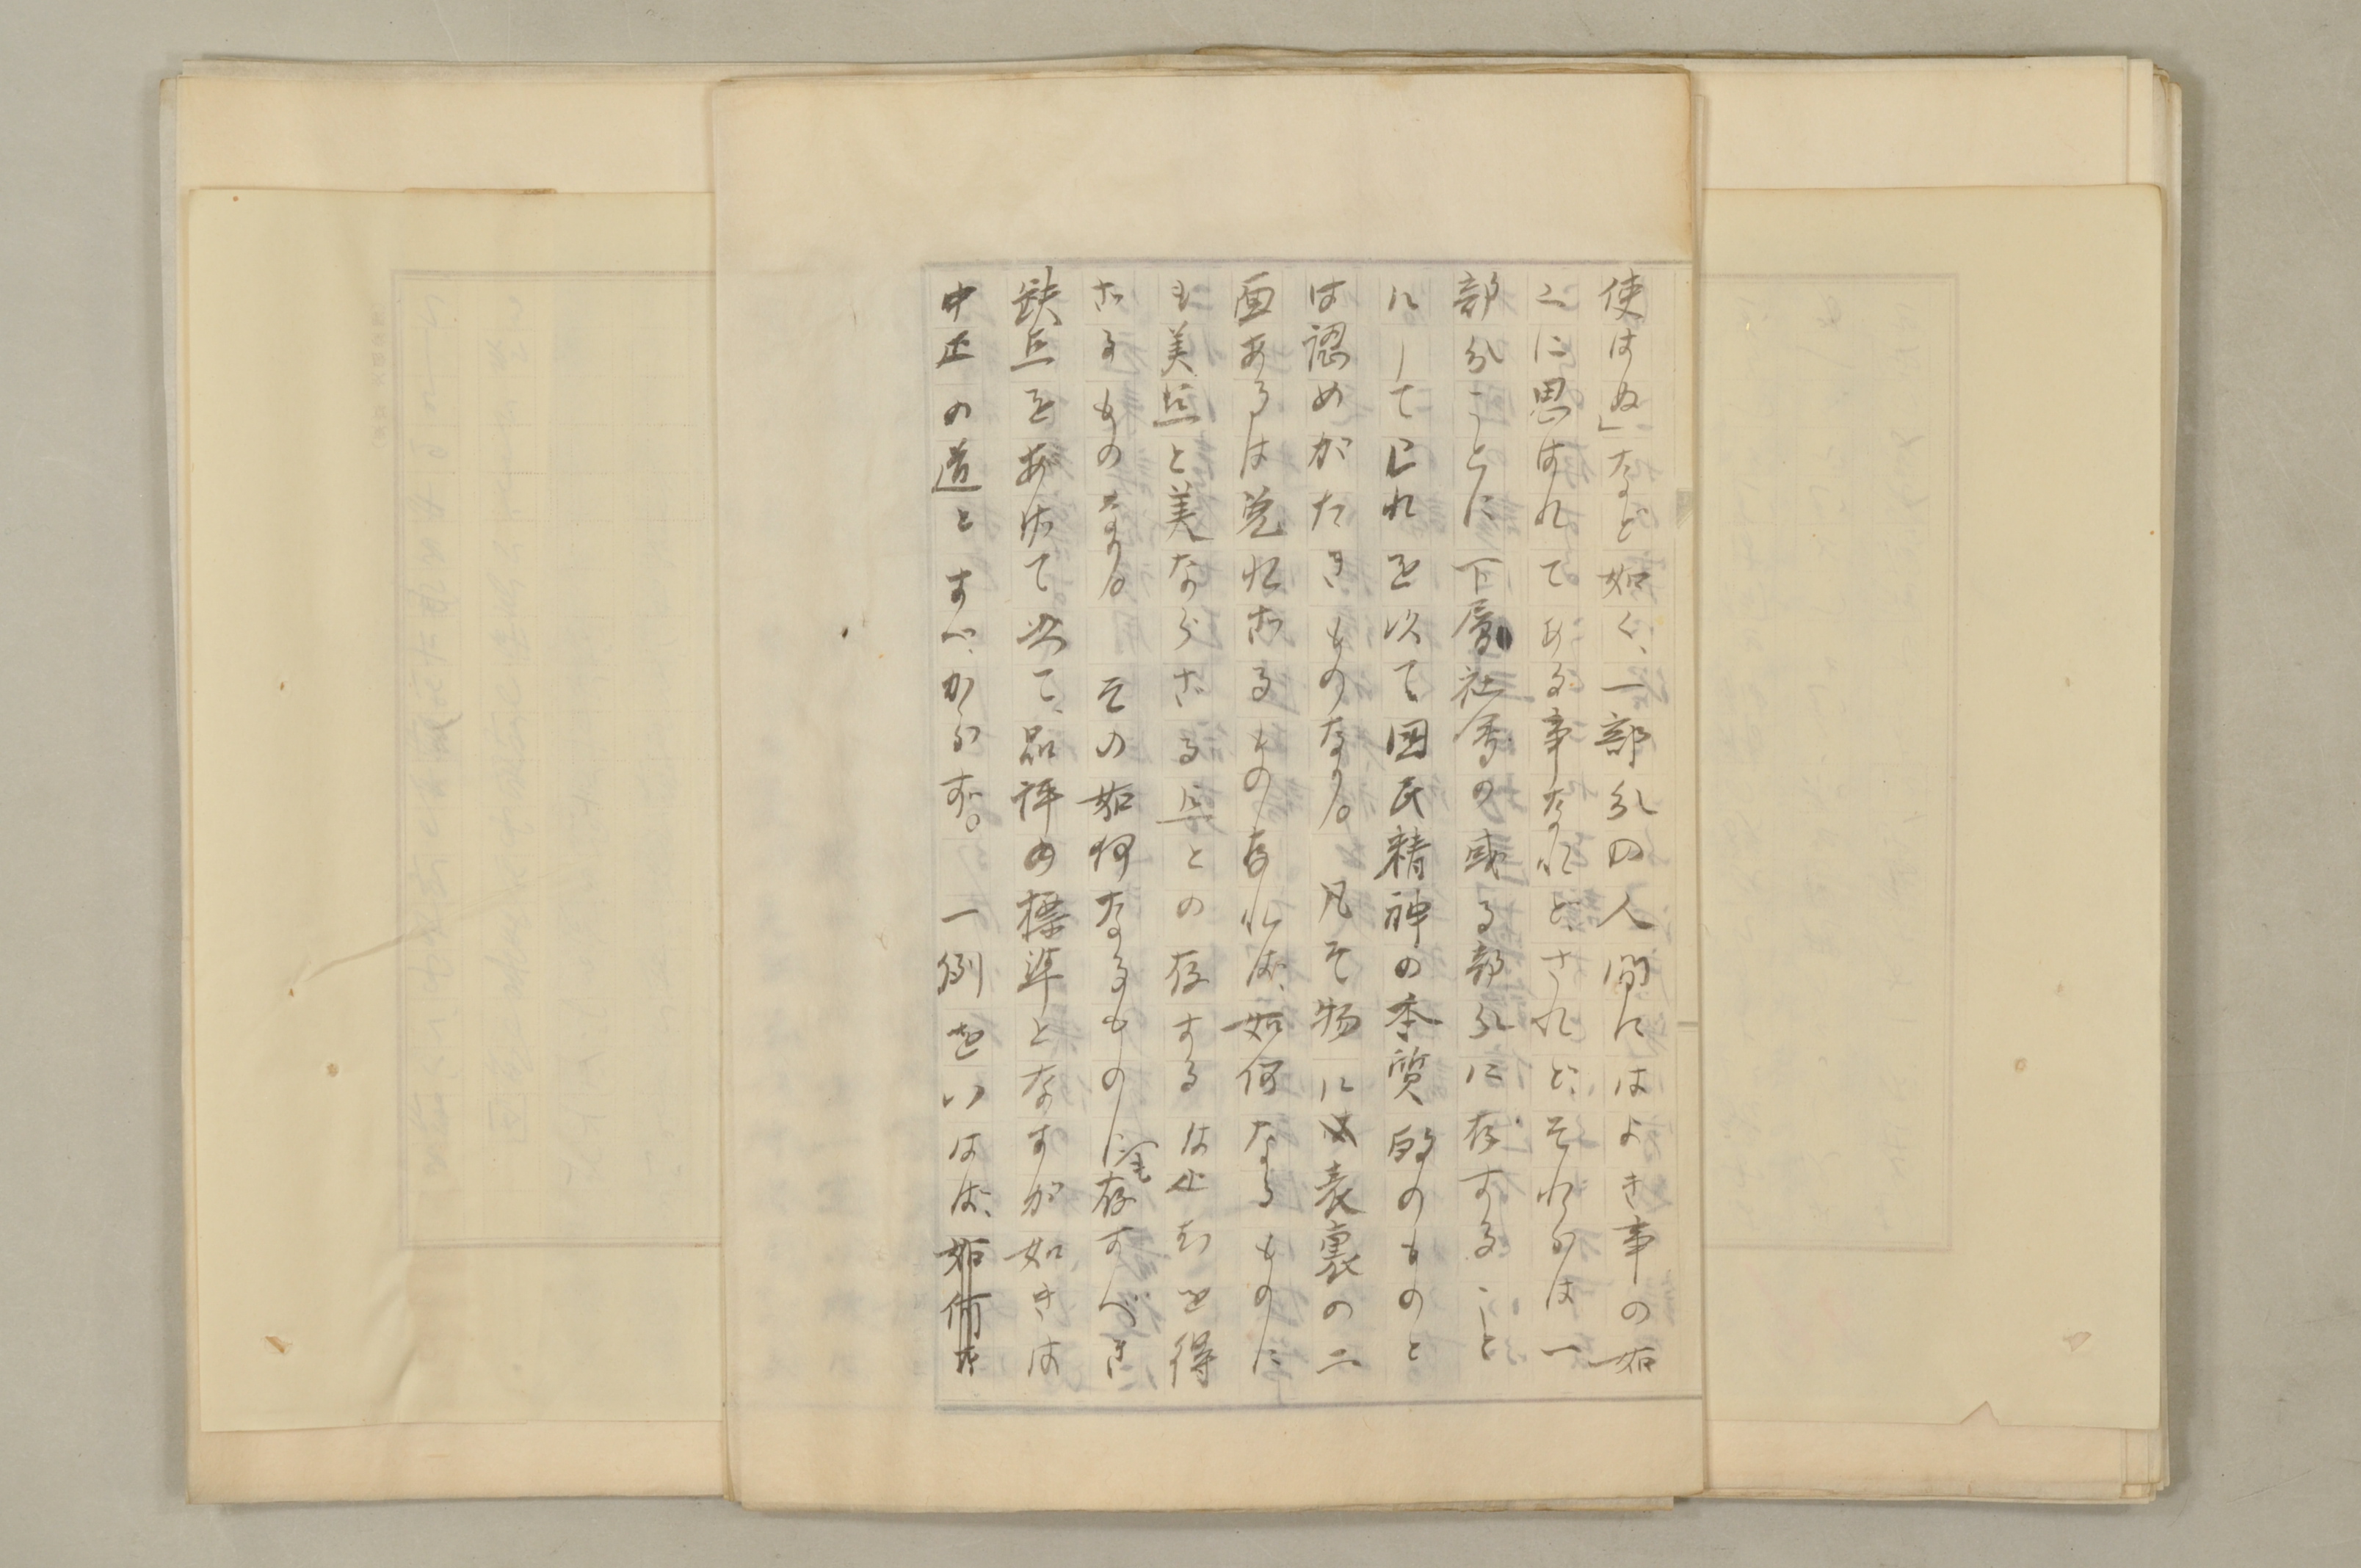 使はぬ」など如く、一部分の人間にはよき事の如
くに思はれてある事なれど、されど、それらは一
部分ことに下層社会の或る部分に存すること
にして已れを以て国民精神の本質的のものと
は認めがたきものなり。凡そ物には表裏の二
面あるは免れざるものなれば、如何なるものに
も美点と美ならざる点との存するは止むを得
ざるものなり。その如何なるものに宝存すべき
欠点をあげて以て、品評の標準となすが如きは
中正の道とすべからず。一例をいはば、